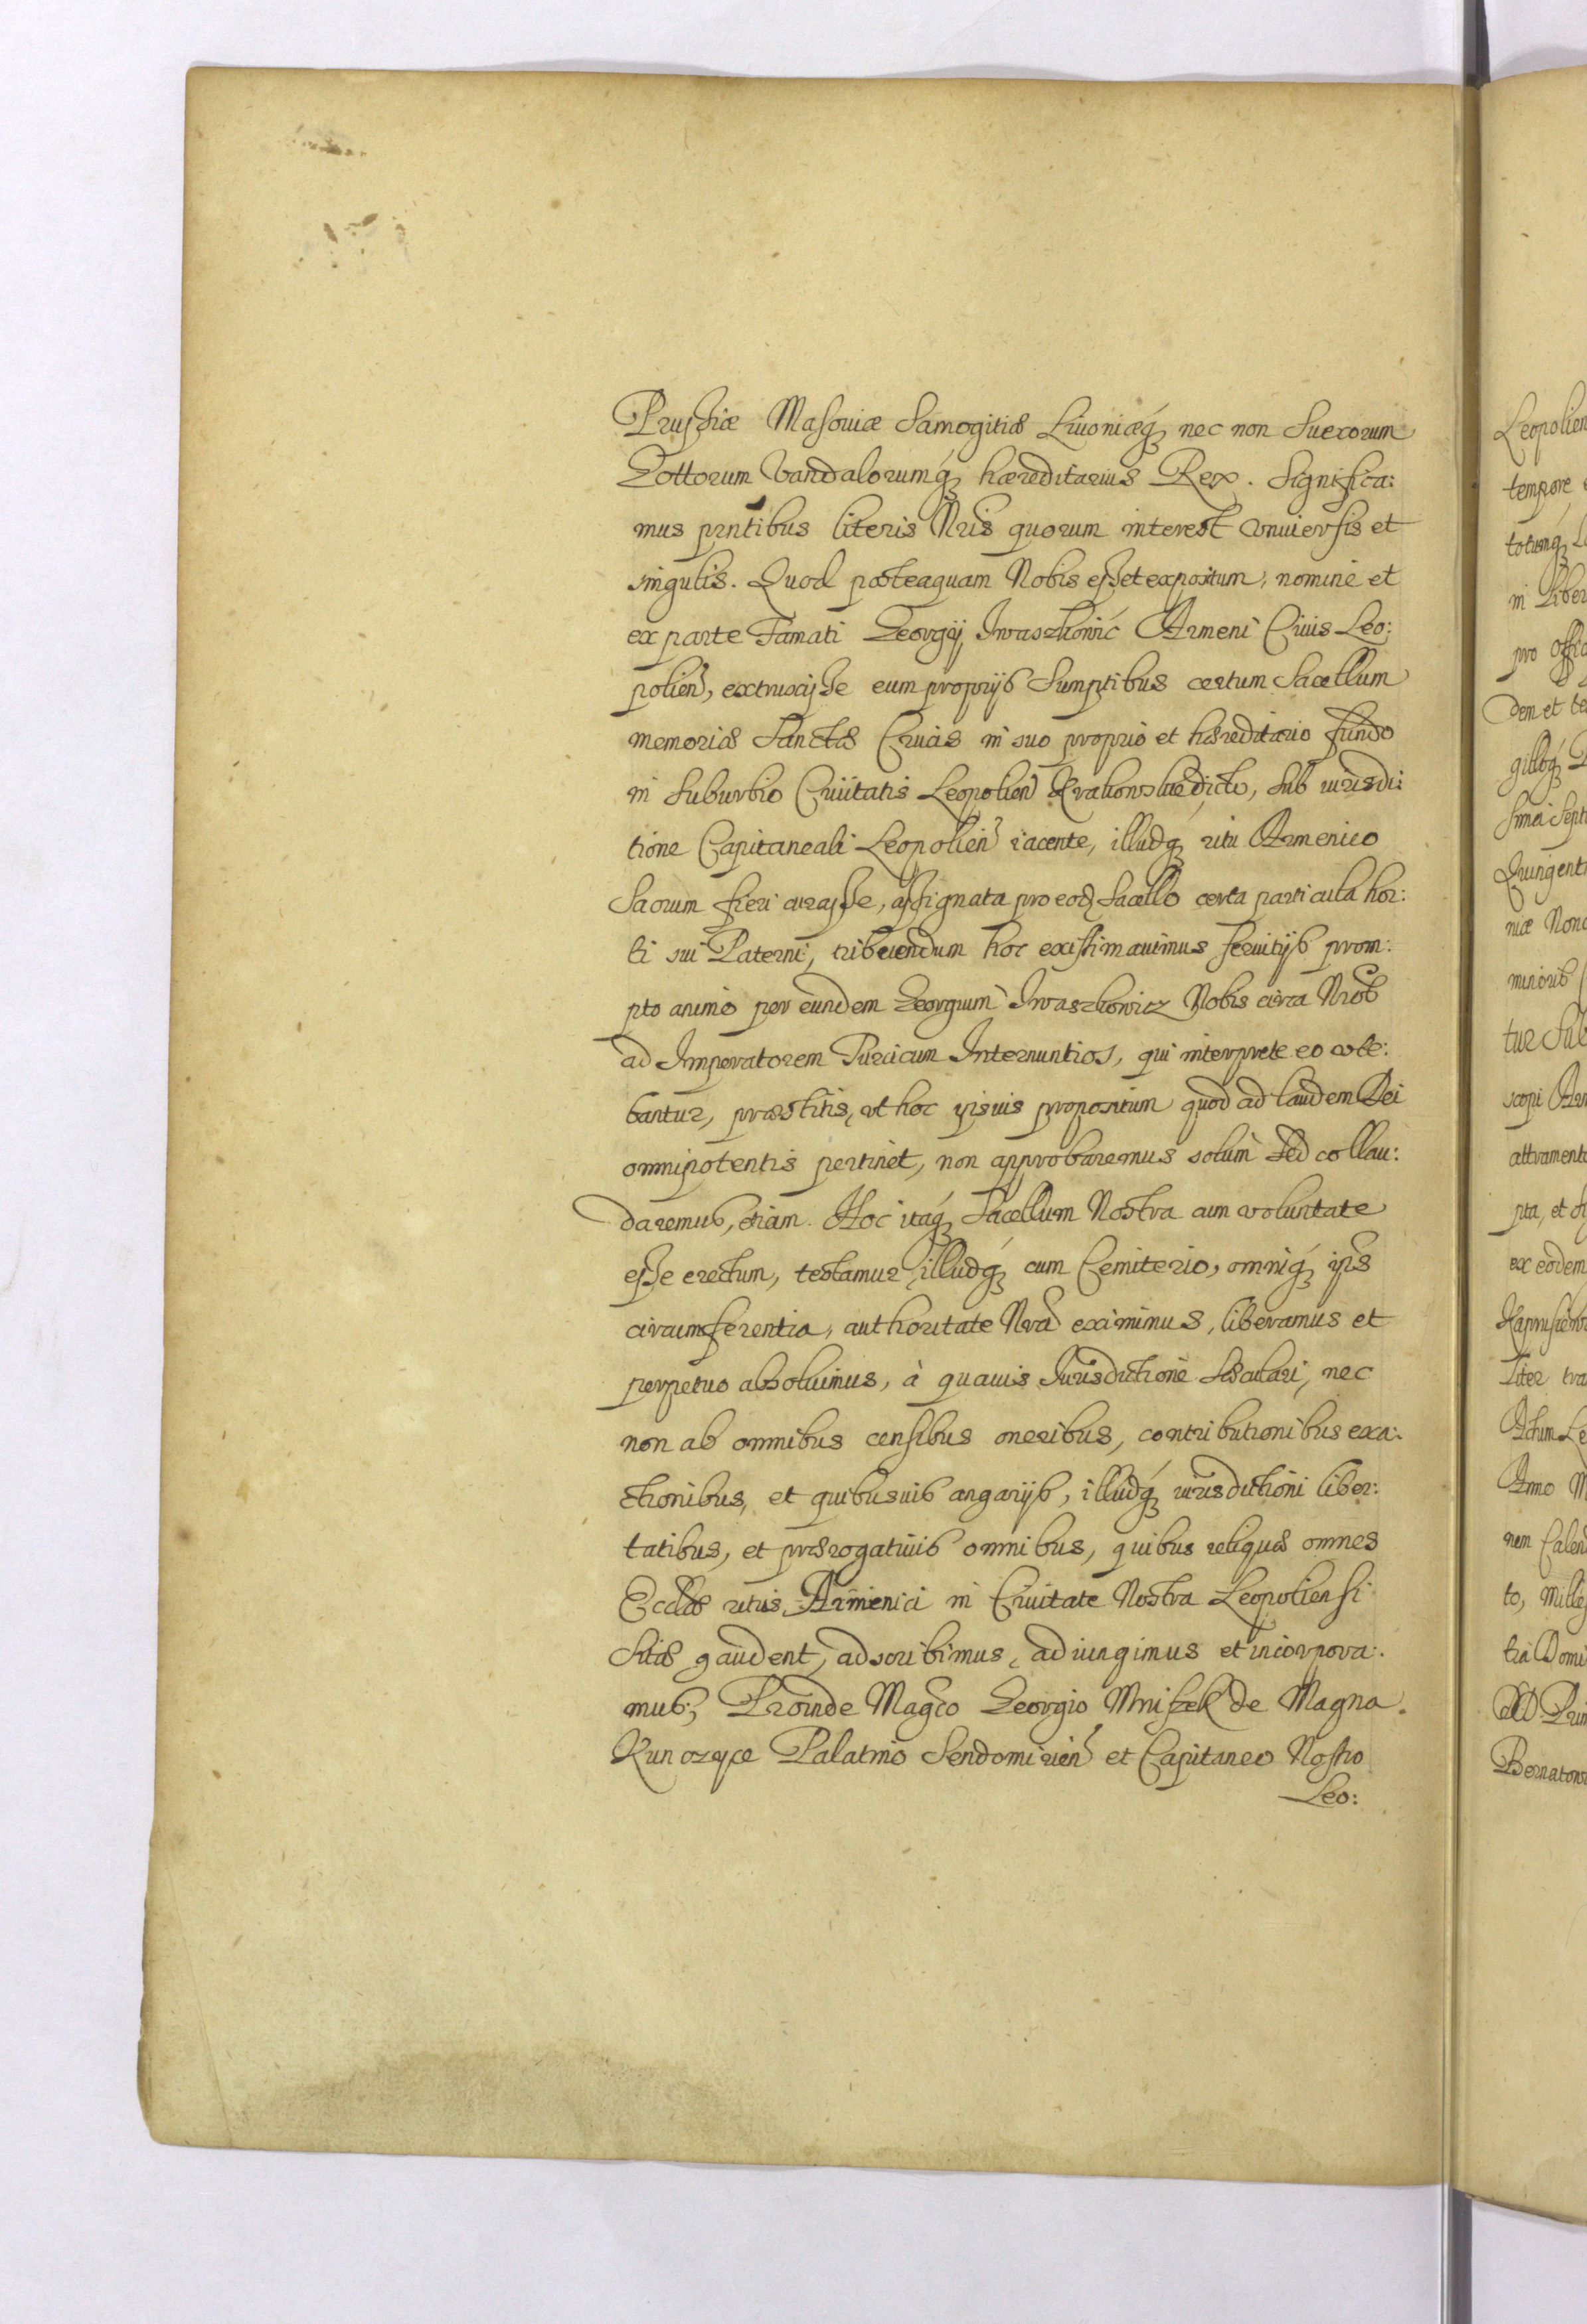 Prussiæ Masouiæ Samogitiæ Liuoniæq́ nec non Suecorum
Gottorum Vandalorumq́ hæreditarius Rex. Significa:
mus prntibus literis Nris quorum interest vniuersis et
singulis. Quod posteaquam Nobis esset expositum, nomine et
ex parte Famati Georgij Iwaszkowic Armeni Ciuis Leo:
polien, extruxisse eum proprijs sumptibus certum Sacellum
memoriæ Sanctæ Crucis in suo proprio et hæreditario fundo
in Suburbio Ciuitatis Leopolien dicto, sub iurisdi:
tione Capitaneali Leopolien iacente, illudq́ ritu Armenico
Sacrum fieri curasse, assignata pro eod Sacello certa particula hor:
ti sui Paterni, tribuendum hoc existimauimus seruitijs prom:
pto animo per eundem Georgium Iwaszkowicz Nobis circa Nros
ad Imperatorem Turcicum Internuntios, qui interprete eo vte:
bantur, præstitis, vt hoc ipsius propositum quod ad laudem Dei
omnipotentis pertinet, non approbaremus solum sed collau:
daremus, etiam. Hoc itaq́ Sacellum Nostra cum voluntate
esse erectum, testamur, illudq́ cum Cemiterio, omniq́ ips
circumferentia, authoritate Nra eximimus, liberamus et
perpetuo absoluimus, à quauis Iurisdictione sæculari, nec
non ab omnibus censibus oneribus, contributionibus exa:
ctionibus, et quibusuis angarijs, illudq́ iurisdictioni liber:
tatibus, et prærogatiuis omnibus, quibus reliquæ omnes
Ecclæ ritus Armenici in Ciuitate Nostra Leopoliensi
sitæ gaudent, adscribimus, adiungimus et incorpora:
mus; Proinde Magco Georgio Mniszek de Magna
Kunczyce Palatino Sendomirien et Capitaneo Nostro
Leo: